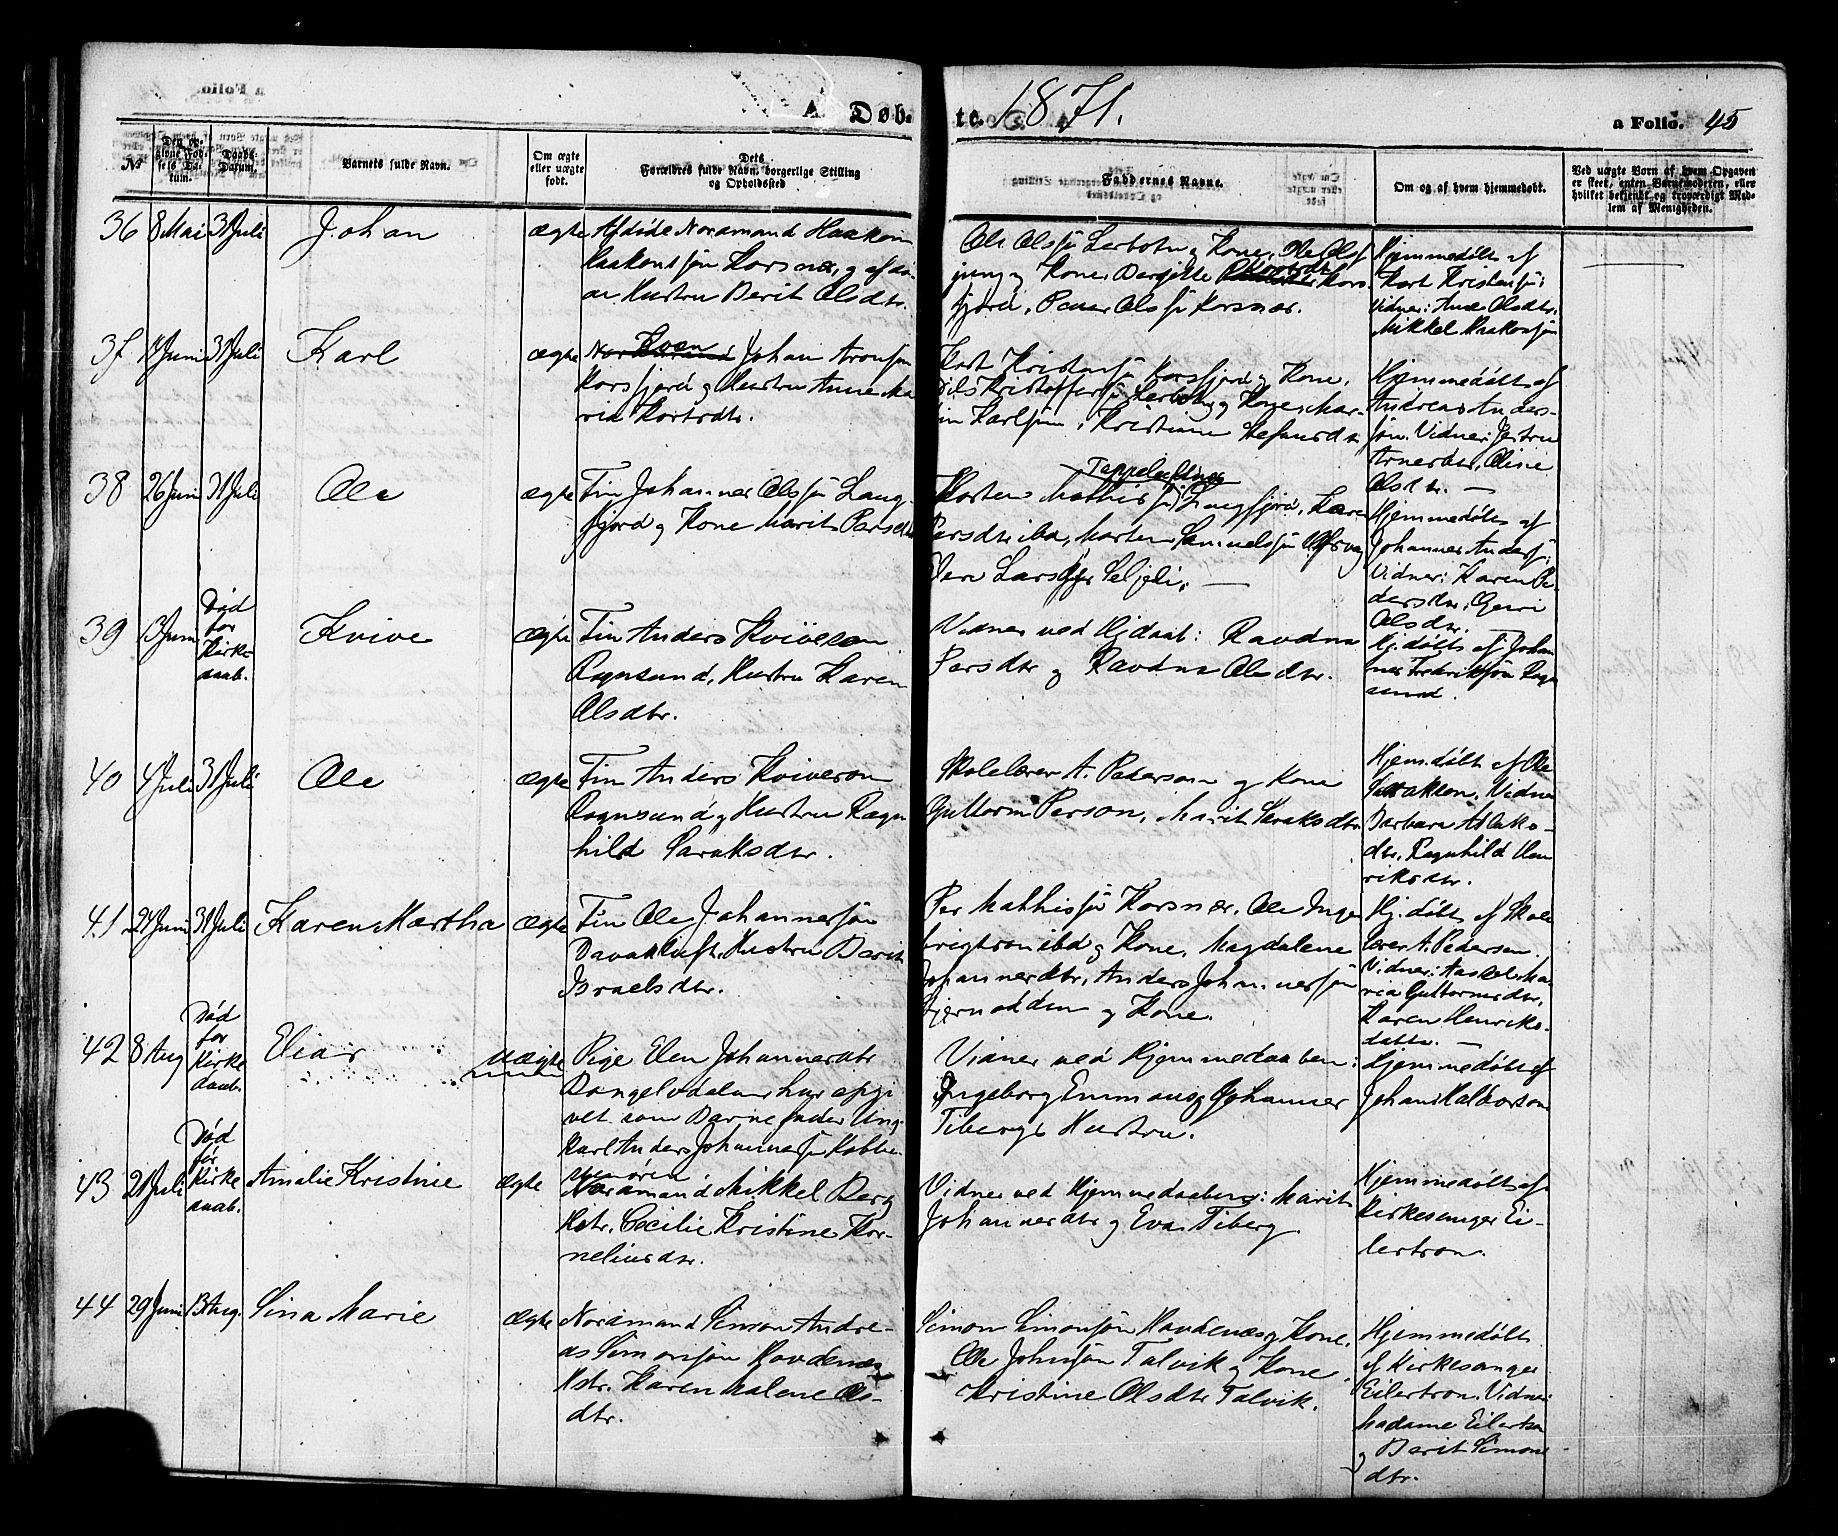 A. Døb- te. 1871. a Folio. 45
№
Den op-
givne Fød-
sels Da-
tum.
Daabs-
Datum.
Barnets fulde Navn.
Om ægte
eller uægte
født.
Dets
Forældres fulde Navn, borgerlige Stilling
og Opholdssted
Faddernes Navne.
Om og af hvem hjemmedøbt.
Ved uægte Børn af hvem Opgaven
er skeet, enten Barnemoderen, eller
hvilket bekjendt og troværdigt Med-
lem af Menigheden.
36 8 Mai 31 Juli Johan ægte Afdøde Nordmand Haakon
Haakonssøn Korsnæs, og afdø-
de Hustru Berit Olsdtr.
Ole Olssøn Lerbotn og Kone, Ole Olss
og Kone, Bergitte Kors
fjord, Peder Olssøn Korsnæs.
Hjemmedøbt af
Kort Kristenssøn;
Vidner: Ane Olsdtr.
Mikkel Haakonssøn
37 17 Juni 31 Juli Karl ægte Kven Johan Aronssøn
Korsfjord og Hustru Anne Ma
ria Kortsdtr.
Kort Kristenssøn Korsfjord og Kone,
Nils Kristofferssøn Lerbotn og Kone, Mar-
tin Karlssøn, Kristiane Stefansdtr
Hjemmedøbt af
Andreas Anders-
søn. Vidner: Jertru
Arnesdtr, Oline
Olsdtr. —
38 26 Juni 31 Juli Ole ægte Fin Johannes Olssøn Lang-
fjord og Kone Marit Persdtr
Tappeluften
Morten Mathissøn Langfjord, Karen
Persdtr ibd, Morten Samuelssøn
Peder Larssøn Seljeli. —
Hjemmedøbt af
Johannes Anderss;
Vidner: Karen Pe-
dersdtr, Guri
Olsdtr. —
39 13 Juni Død
før
Kirke-
daab.
Kvive ægte Fin Anders Kviveson
Rognsund, Hustru Karen
Olsdtr.
Vidner ved Hjdaab: Ravdna
Persdtr og Ravdna Olsdtr.
Hj. døbt af Johan
nes Fredrikssøn Rogn
sund.
40 4 Juli 31 Juli Ole ægte Fin Anders Kviveson
Rognsund og Hustru Ragn
hild Saraksdtr.
Skolelærer A. Pederson og Kone
Guttorm Person, Marit Saraksdtr.
Hjemdøbt af Ole
Sarakson. Vidner
Barbara Aslaks-
dtr, Ragnhild Hen
riksdtr.
41 24 Juni 31 Juli Karen Martha ægte Fin Ole Johannessøn
Davakluft, Hustru Berit
Israelsdtr.
Per Mathissøn Korsnæs, Ole Inge
brigtson ibd og Kone, Magdalene
Johannesdtr, Anders Johannessøn
og Kone.
Hj. døbt af Skole
lærer A. Pederson.
Vidner: Ma-
ria Guttormsdtr,
Karen Henriks-
datter. —
42 8 Aug Død
før
Kirke
daab.
Elias uægte Pige Elen Johannesdtr
har opgi
vet som Barnefader Ung-
karl Anders Johannessøn
Vidner ved Hjemmedaaben:
Ingeborg Emmaus og Johannes
Tibergs Hustru.
Hjemmedøbt af
Johan Halvorson
43 21 Juli Død
før
Kirke
daab.
Amalie Kristine ægte Nordmand Mikkel Berg
Hstr. Cecilie Kristine Kor-
neliusdtr.
Vidner ved Hjemmedaaben: Marit
Johannesdtr og Eva Tiberg
Hjemmedøbt af
Kirkesanger Ei-
lertson.
44 29 Juni 13 Aug. Sina Marie ægte Nordmand Simon Andre-
as Simonssøn Kovdenæs
Hstr. Karen Malene Ols-
dtr.
Simon Simonssøn Kovdenæs og Kone,
Ole Johnssøn Talvik og Kone
Kristine Olsdtr Talvik.
Hjemmedøbt
af Kirkesanger
Eilertson. Vidner:
Madame Eilertson
og Berit Simons
dtr.